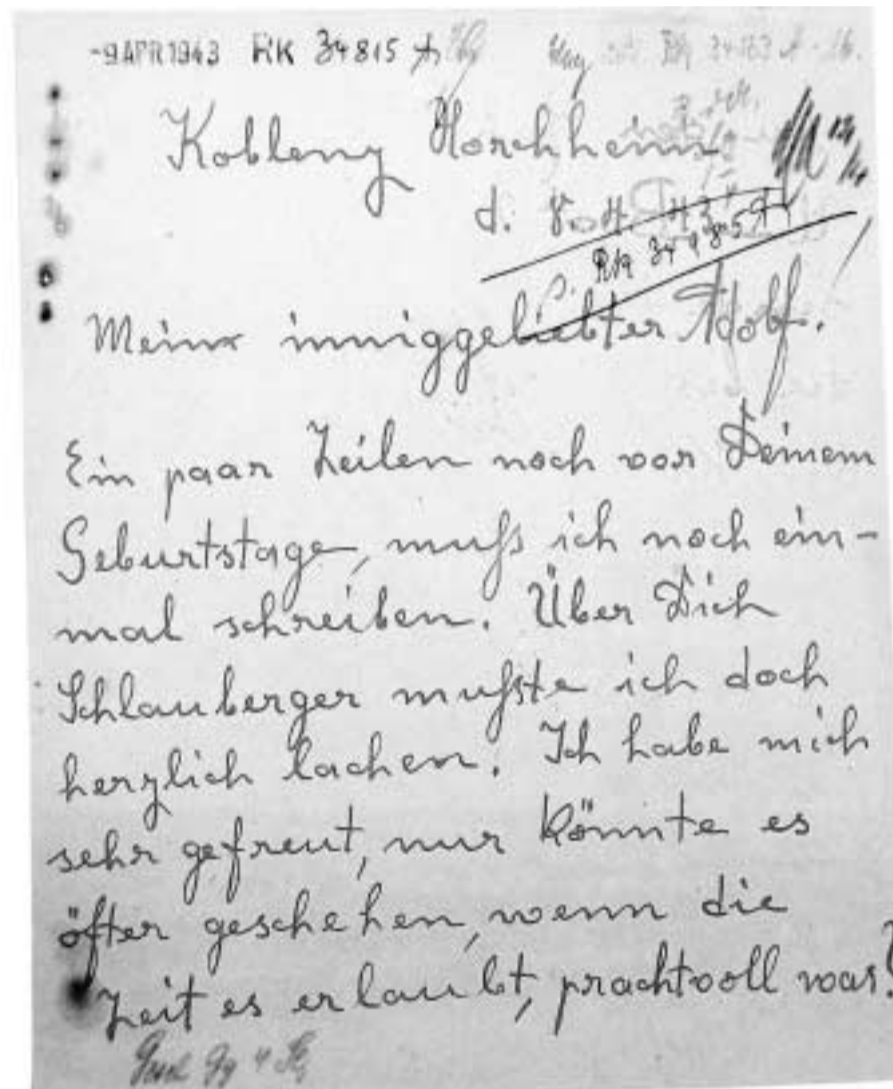 -9 APR 1943 RK 34815 A
Koblenz Horchheim
d. 8.4.43.
RK 34815 A
Meinx inniggeliebter Adolf!
Ein paar Zeilen noch vor Deinem
Geburtstage, muß ich noch ein-
mal schreiben. Über Dich
Schlauberger mußte ich doch
herzlich lachen. Ich habe mich
sehr gefreut, nur könnte es
öfter geschehen, wenn die
Zeit es erlaubt, prachtvoll was?